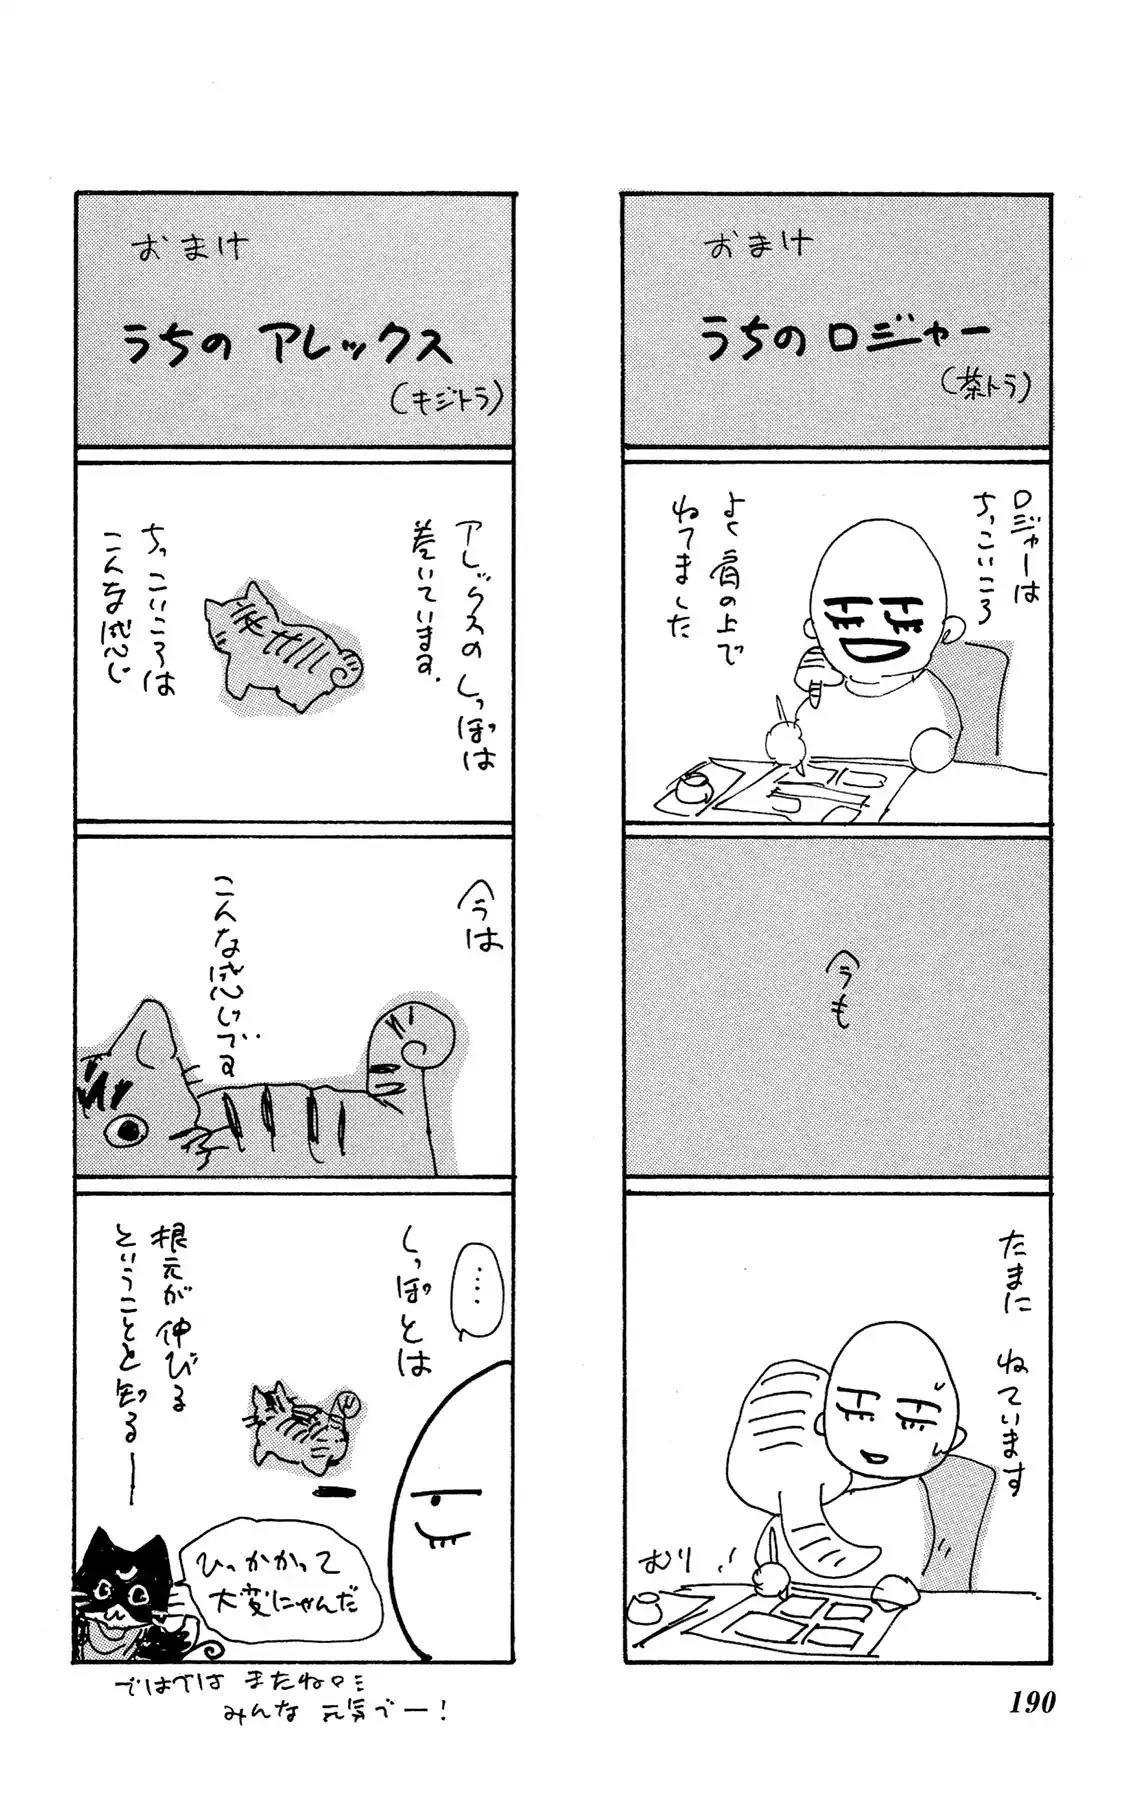 おまけ
うちの ロジャー
(茶トラ)
ロジャーは
ちっこいころ
よく肩の上で
ねてました
今も
たまに ねています
むり…!
おまけ
うちの アレックス
(キジトラ)
アレックスの しっぽは
巻いています。
ちっこいころは
こんな感じ
今は
こんな感じです
‥‥
しっぽとは
根元が 伸びる
ということを 知る—
ひっかかって
大変にゃんだ
ではでは またね。
みんな 元気でー!
190